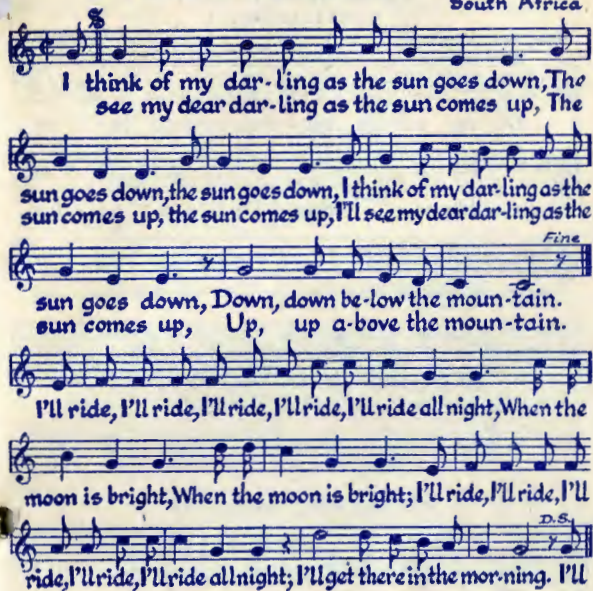 South Africa
I think of my dar-ling as the sun goes down, The
see my dear dar-ling as the sun comes up, The
sun goes down, the sun goes down, I think of my dar-ling as the
sun comes up, the sun comes up, I'll see my dear dar-ling as the
Fine
sun goes down, Down, down be-low the moun-tain.
sun comes up, Up, up a-bove the moun-tain.
I'll ride, I'll ride, I'll ride, I'll ride, I'll ride all night, When the
moon is bright, When the moon is bright; I'll ride, I'll ride, I'll
D.S.
ride, I'll ride, I'll ride all night; I'll get there in the mor-ning. I'll